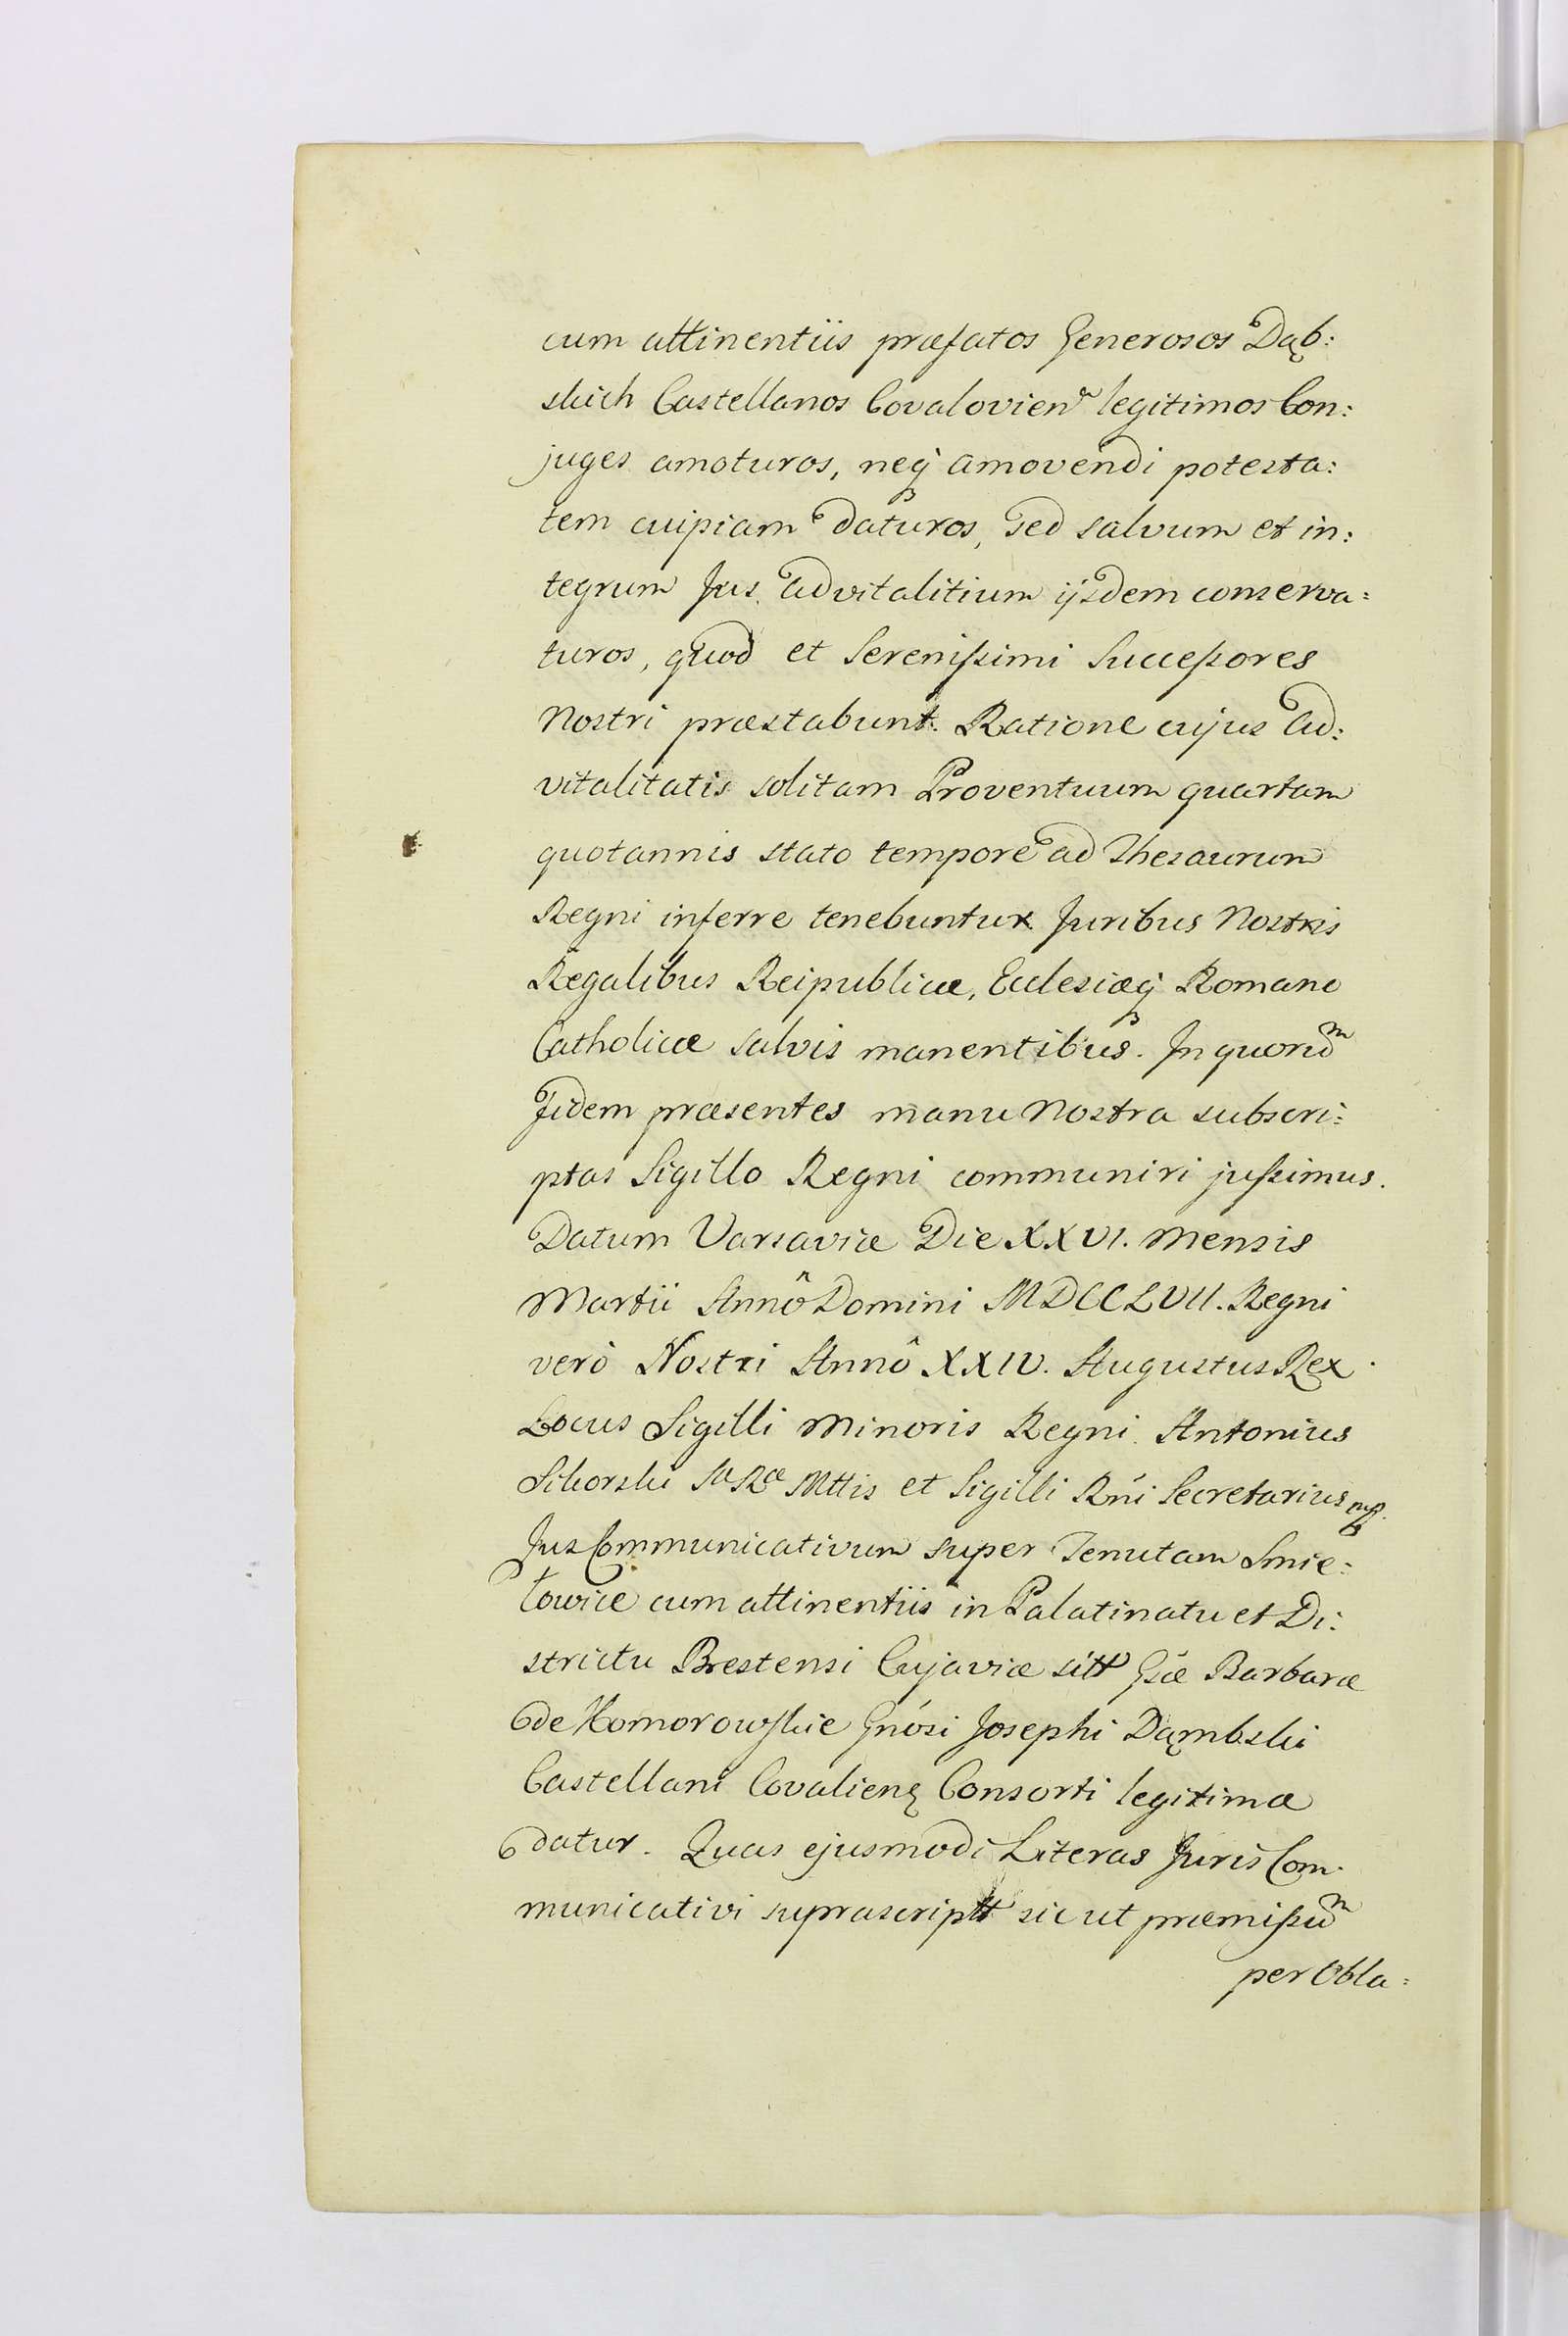 cum attinentiis præfatos Generosos Dąb:
skich Castellanos Covalovien̄ legitimos Con:
juges amoturos, neq̨ amovendi potesta:
tem cuipiam daturos, sed salvum et in:
tegrum Jus advitalitium ijsdem conserva:
turos, quod et Serenissimi Successores
Nostri præstabunt. Ratione cujus ad:
vitalitatis solitam Proventuum quartam
quotannis stato tempore ad Thesaurum
Regni inferre tenebuntur. Juribus Nostris
Regalibus Reipublicæ, Ecclesiæq̨ Romano
Catholicæ salvis manentibus. In quorum
Fidem præsentes manu Nostra subscri:
ptas Sigillo Regni communiri jussimus.
Datum Varsaviæ Die XXVI. Mensis
Martii Annô Domini MDCCLVII. Regni
verò Nostri Annô XXIV. Augustus Rex.
Locus Sigilli Minoris Regni. Antonius
Sikorski Sæ Ræ Mttis et Sigilli Rńi Secretarius mp.
Jus Communicativum super Tenutam Smie:
łowice cum attinentiis in Palatinatu et Di:
strictu Brestensi Cujaviæ sitt Gsæ Barbaræ
de Komorowskie Gnósi Josephi Dąmbski
Castellani Covalien̨ Consorti legitimæ
datur. Quas ejusmodi Literas Juris Com:
municativi suprascriptt sic ut præmissum
per Obla: